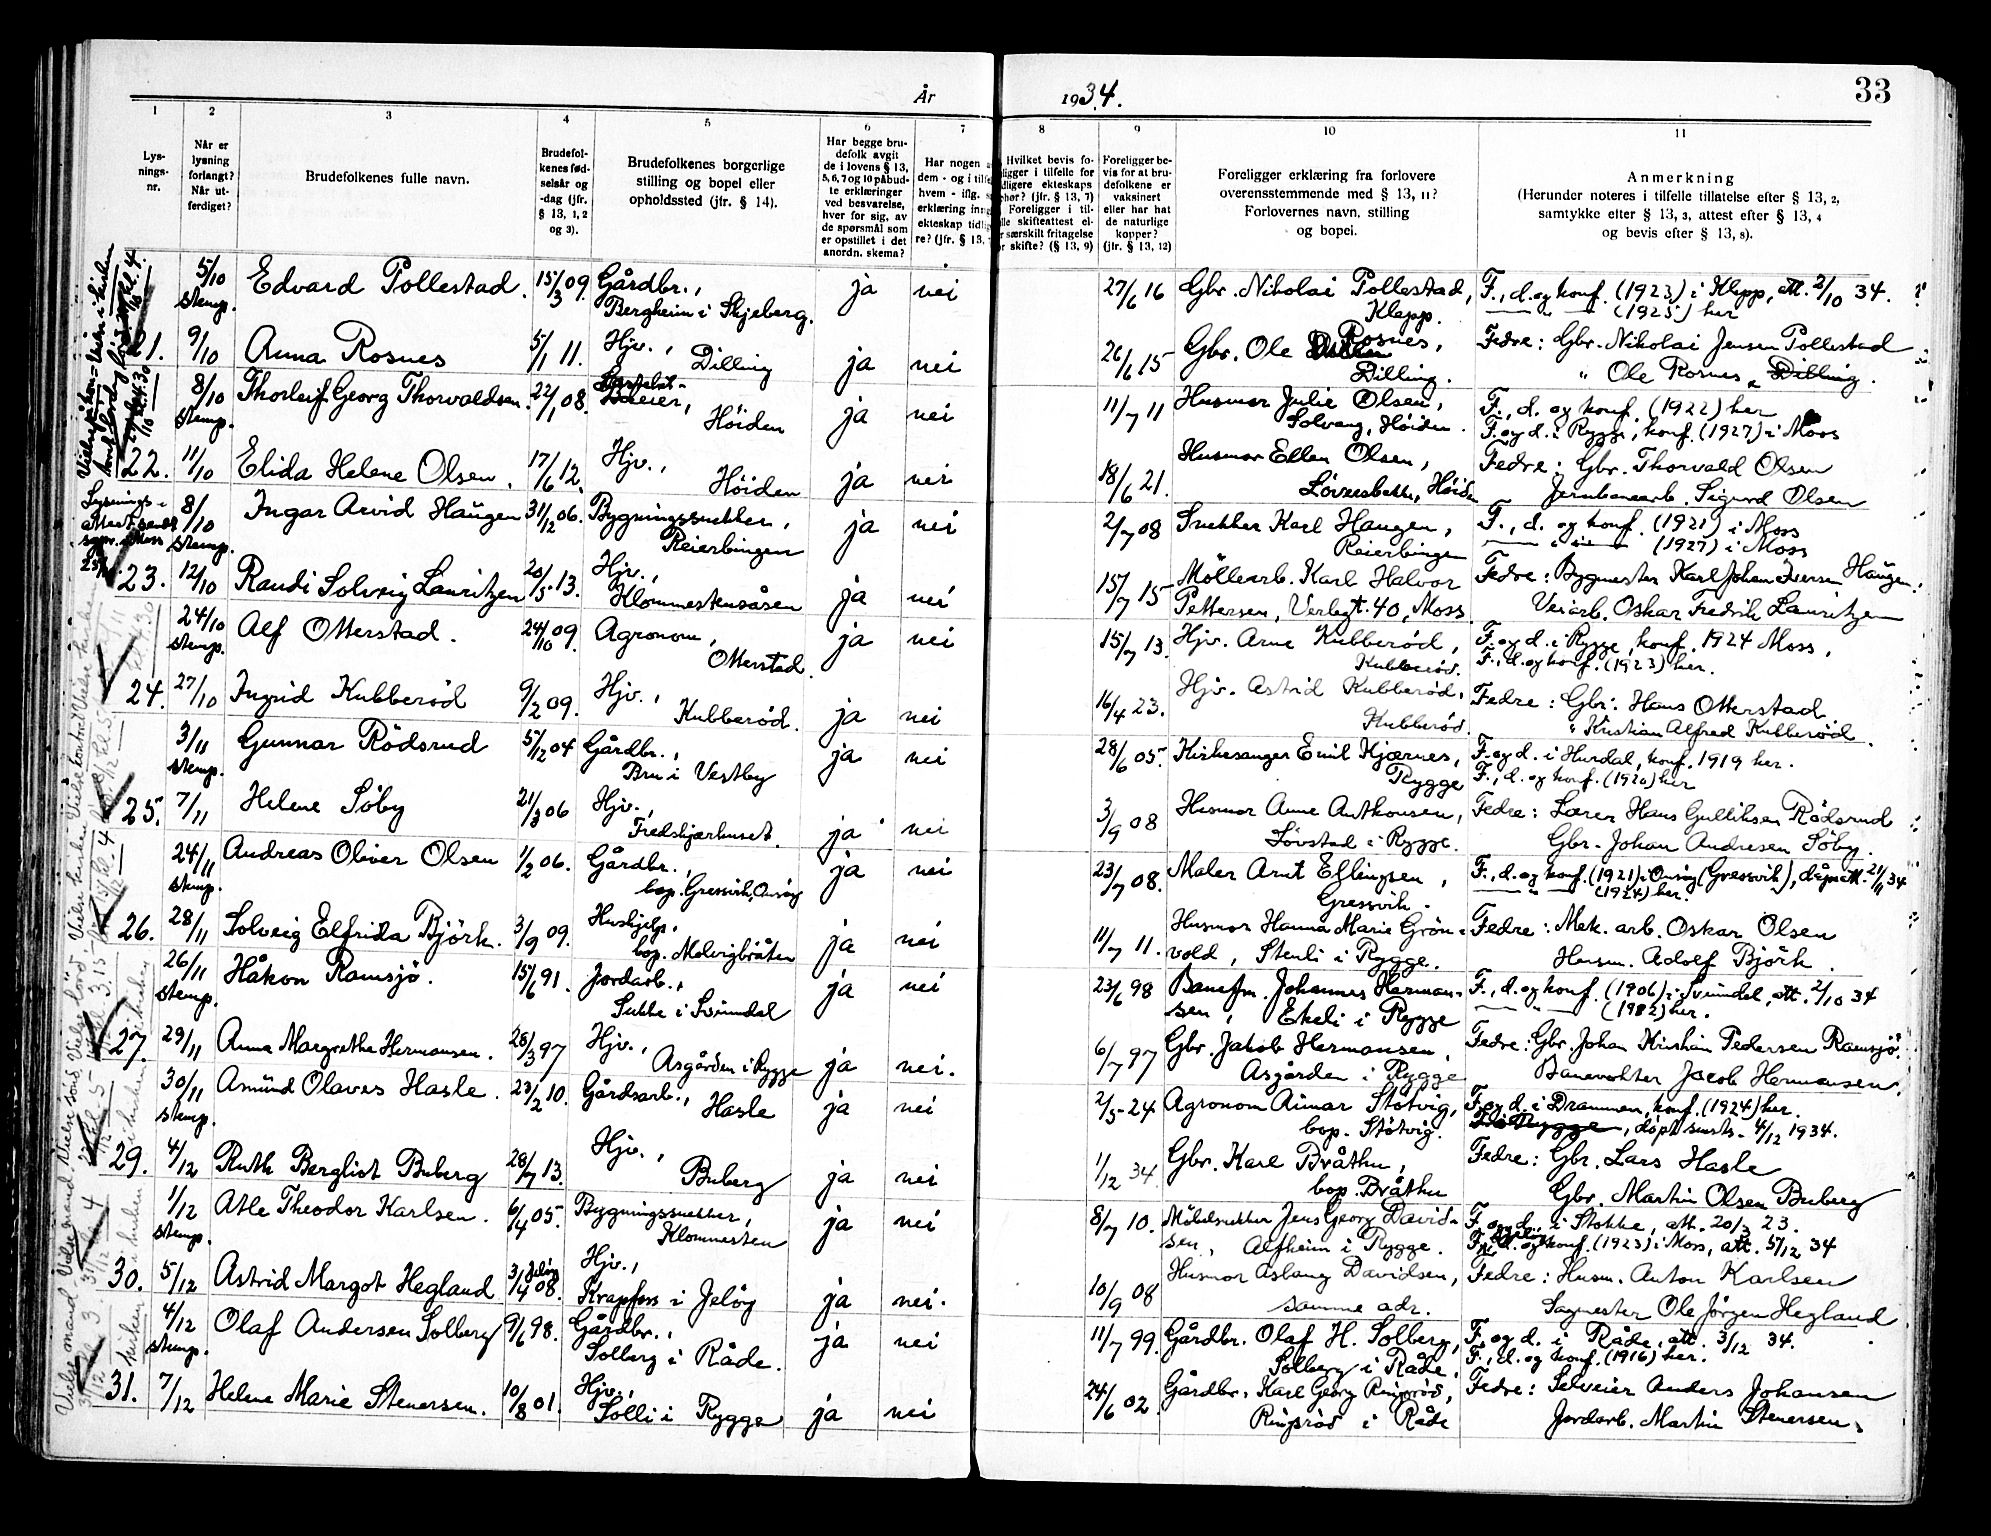 År 1934. 33
1 2 3 4 5 6 7 8 9 10 11
Lys-
nings-
nr.
Når er
lysning
forlangt?
Når ut-
ferdiget?
Brudefolkenes fulle navn.
Brudefol-
kenes fød-
selsår og
-dag (jfr.
§ 13, 1, 2
og 3).
Brudefolkenes borgerlige
stilling og bopel eller
opholdssted (jfr. § 14).
Har begge bru-
defolk avgit
de i lovens § 13,
5, 6, 7 og 10 påbud-
te erklæringer
ved besvarelse,
hver for sig, av
de spørsmål som
er opstillet i det
anordn. skema?
Har nogen
dem - og i tilfe
hvem - iflg.
erklæring inng
ekteskap tidli
re? (jfr. § 13,
Hvilket bevis fo-
ligger i tilfelle for
dligere ekteskaps
hør? (jfr. § 13, 7)
Foreligger i til-
lle skifteattest el-
særskilt fritagelse
r skifte? (§ 13, 9)
Foreligger be-
vis for at bru-
defolkene er
vaksinert
eller har hat
de naturlige
kopper?
(jfr. § 13, 12)
Foreligger erklæring fra forlovere
overensstemmende med § 13, 11?
Forlovernes navn, stilling
og bopel.
Anmerkning
(Herunder noteres i tilfelle tillatelse efter § 13, 2,
samtykke efter § 13, 3, attest efter § 13, 4
og bevis efter § 13, 8).
5/10 stemp. Edvard Pollestad. 15/3 09 Gårdbr., ja nei 27/6 16 Gbr. Nikolai Pollestad, F., d. og konf. (1923) i Klepp, att. 2/10 34.
Bergheim i Skjeberg. Klepp. (1925) her
21. 9/10 Anna Rosnes 5/1 11. Hjv., Dilling ja nei 26/6 15 Gbr. Ole Rosnes, Fedre: Gbr. Nikolai Jensen Pollestad
Dilling. " Ole Rosnes, Dilling.
8/10 stemp. Thorleif Georg Thorvaldsen. 22/1 08. Høiden ja nei 11/7 11 Husmor Julie Olsen, F., d. og konf. (1922) her
Solvang, Høiden. F. og d. i Rygge, konf. (1927) i Moss
22. 11/10 Elida Helene Olsen. 17/6 12. Hjv., Høiden ja nei 18/6 21. Husmor Ellen Olsen, Fedre: Gbr. Thorvald Olsen
Høiden Jernbanearb. Sigurd Olsen
8/10 stemp. Ingar Arvid Haugen 31/12 06. Bygningssnekker, ja nei 2/7 08 Snekker Karl Haugen, F., d. og konf. (1921) i Moss
Reierbingen Reierbingen (1927) i Moss
23. 12/10 Randi Solveig Lauritzen 20/5 13. Hjv., ja nei 15/7 15 Møllearb. Karl Halvor Fedre: Bygmester Karl Johan Iversen Haugen.
Klommestensåsen Pettersen, Verlegt. 40, Moss Veiarb. Oskar Fredrik Lauritzen
24/10 stemp. Alf Otterstad. 24/10 09. Agronom, ja nei 15/7 13. Hjv. Arne Kubberød, F. og d. i Rygge, konf. 1924 Moss,
Otterstad. Kubberød. F., d. og konf. (1923) her.
24. 27/10 Ingrid Kubberød 9/2 09. Hjv., Kubberød. ja nei 16/4 23. Hjv. Astrid Kubberød, Fedre: Gbr. Hans Otterstad
Kubberød. " Kristian Alfred Kubberød.
3/11 stemp. Gunnar Rødsrud 5/12 04 Gårdbr., ja nei 28/6 05. Kirkesanger Emil Kjærnes, F. og d. i Hurdal, konf. 1919 her.
Bru i Vestby Rygge F., d. og konf. (1920) her
25. 7/11 Helene Søby 21/3 06 Hjv., ja nei 3/9 08 Husmor Anne Anthonsen, Fedre: Lærer Hans Gulliksen Rødsrud
Fredskjærhuset. Løvstad i Rygge. Gbr. Johan Andresen Søby.
24/11 stemp. Andreas Oliver Olsen 1/2 06. Gårdbr., ja nei 23/7 08. Maler Arnt Ellingsen, F., d. og konf. (1921) i Onsøy (Gressvik), dåpsatt. 21/11 34
bop. Gressvik, Onsøy Gressvik. (1924) her.
26. 28/11 Solveig Elfrida Bjørk. 3/9 09. Hushjelp, ja nei 11/7 11. Husmor Hanna Marie Grøn- Fedre: Mek. arb. Oskar Olsen
vold, Stenli i Rygge. Husm. Adolf Bjørk.
26/11 stemp. Håkon Ramsjø. 15/6 91. Jordarb., ja nei 23/6 98 Banefm. Johannes Herman- F., d. og konf. (1906) i Svindal, att. 2/10 34
i Svindal sen, Ekeli i Rygge her.
27. 29/11 Anna Margrethe Hermansen. 28/3 97 Hjv., ja nei. 6/7 97 Gbr. Jakob Hermansen, Fedre: Gbr. Johan Kristian Pedersen Ramsjø.
Asgården i Rygge Asgården i Rygge Banevokter Jacob Hermansen.
30/11 stemp. Amund Olaves Hasle. 23/2 10. Gårdsarb., ja nei 2/5 24 Agronom Aimar Støtvig, F. og d. i Drammen, konf. (1924) her.
Hasle bop. Støtvig. 4/12 1934.
29. 4/12 Ruth Bergliot Buberg 28/7 13. Hjv., Buberg ja nei 1/12 34 Gbr. Karl Bråthu, Fedre: Gbr. Lars Hasle
bop. Bråthu Gbr. Martin Olsen Buberg
1/12 stemp. Atle Theodor Karlsen. 6/4 05. Bygningssnekker, ja nei 8/7 10. Møbelsnekker Jens Georg David- F. og d. i Stokke, att. 20/3 23.
Klommesten sen, Alfheim i Rygge. konf. (1923) i Moss, att. 5/12 34
30. 5/12 Astrid Margot Hegland 3/4 08. Hjv., ja nei. 10/9 08 Husmor Aslaug Davidsen, Fedre: Husm. Anton Karlsen
Krapfoss i Jeløy samme adr. Sagmester Ole Jørgen Hegland
4/12 stemp. Olaf Andersen Solberg 9/6 98. Gårdbr., ja nei 11/7 99. Gårdbr. Olaf H. Solberg, F. og d. i Råde, att. 3/12 34.
Solberg i Råde. Solberg i Råde. F., d. og konf. (1916) her.
31. 7/12 Helene Marie Stenersen. 10/8 01. Hjv., ja nei 24/6 02. Gårdbr. Karl Georg Ringsrød, Fedre: Selveier Anders Johansen
Solli i Rygge Ringsrød i Råde Jordarb. Martin Stenersen.